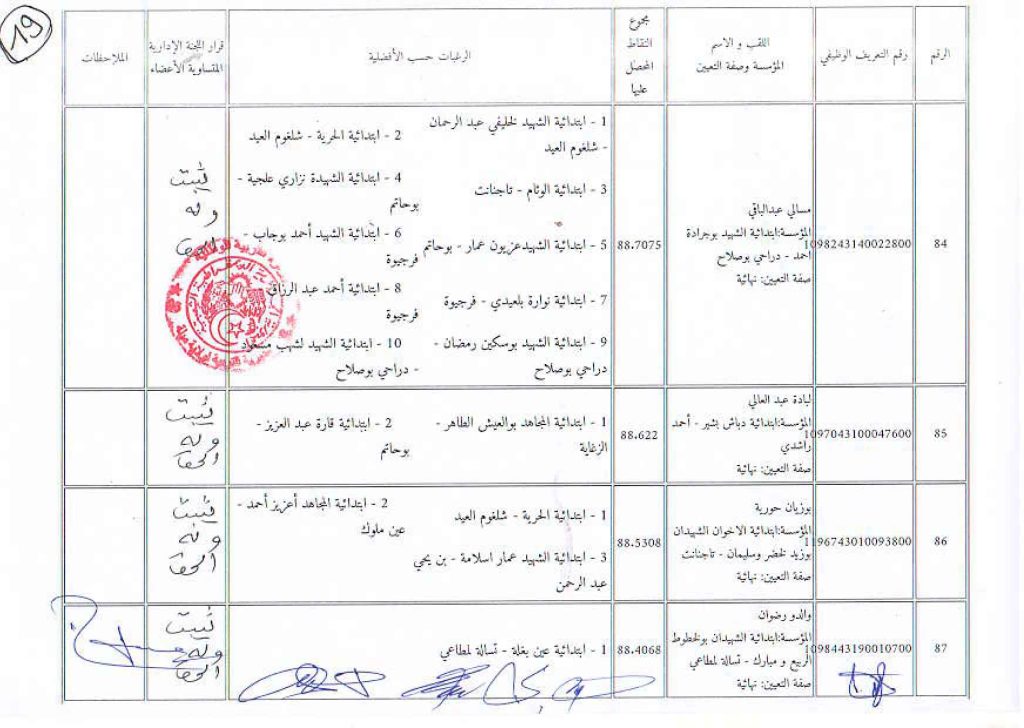 19
الرقم
رقم التعريف الوظيفي
اللقب و الاسم
المؤسسة وصفة التعيين
مجموع
النقاط
المحصل
عليها
الرغبات حسب الأفضلية
قرار اللجنة الإدارية
المتساوية الأعضاء
الملاحظات
84
1098243140022800
مسالي عبدالباقي
المؤسسة:ابتدائية الشهيد بوجرادة
احمد - دراحي بوصلاح
صفة التعيين: نهائية
88.7075
1 - ابتدائية الشهيد لخليفي عبد الرحمان
- شلغوم العيد
2 - ابتدائية الحرية - شلغوم العيد
3 - ابتدائية الوئام - تاجنانت
4 - ابتدائية الشهيدة نزاري علجية -
بوحاتم
5 - ابتدائية الشهيدعزيون عمار - بوحاتم
6 - ابتدائية الشهيد أحمد بوجاب -
فرجيوة
7 - ابتدائية نوارة بلعيدي - فرجيوة
8 - ابتدائية أحمد عبد الرزاق -
فرجيوة
9 - ابتدائية الشهيد بوسكين رمضان -
دراحي بوصلاح
10 - ابتدائية الشهيد لشهب مسعود
- دراحي بوصلاح
يثبت
وله
الحق
85
1097043100047600
لبادة عبد العالي
المؤسسة:ابتدائية دباش بشير - أحمد
راشدي
صفة التعيين: نهائية
88.622
1 - ابتدائية المجاهد بوالعيش الطاهر -
الزغاية
2 - ابتدائية قارة عبد العزيز -
بوحاتم
يثبت
وله
الحق
86
1196743010093800
بوزيان حورية
المؤسسة:ابتدائية الاخوان الشهيدان
بوزيد لخضر وسليمان - تاجنانت
صفة التعيين: نهائية
88.5308
1 - ابتدائية الحرية - شلغوم العيد
2 - ابتدائية المجاهد أعزيز أحمد -
عين ملوك
3 - ابتدائية الشهيد عمار اسلامة - بن يحي
عبد الرحمن
يثبت
وله
الحق
87
1098443190010700
والدو رضوان
المؤسسة:ابتدائية الشهيدان بولخطوط
الربيع و مبارك - تسالة لمطاعي
صفة التعيين: نهائية
88.4068
1 - ابتدائية عين بغلة - تسالة لمطاعي
يثبت
وله
الحق